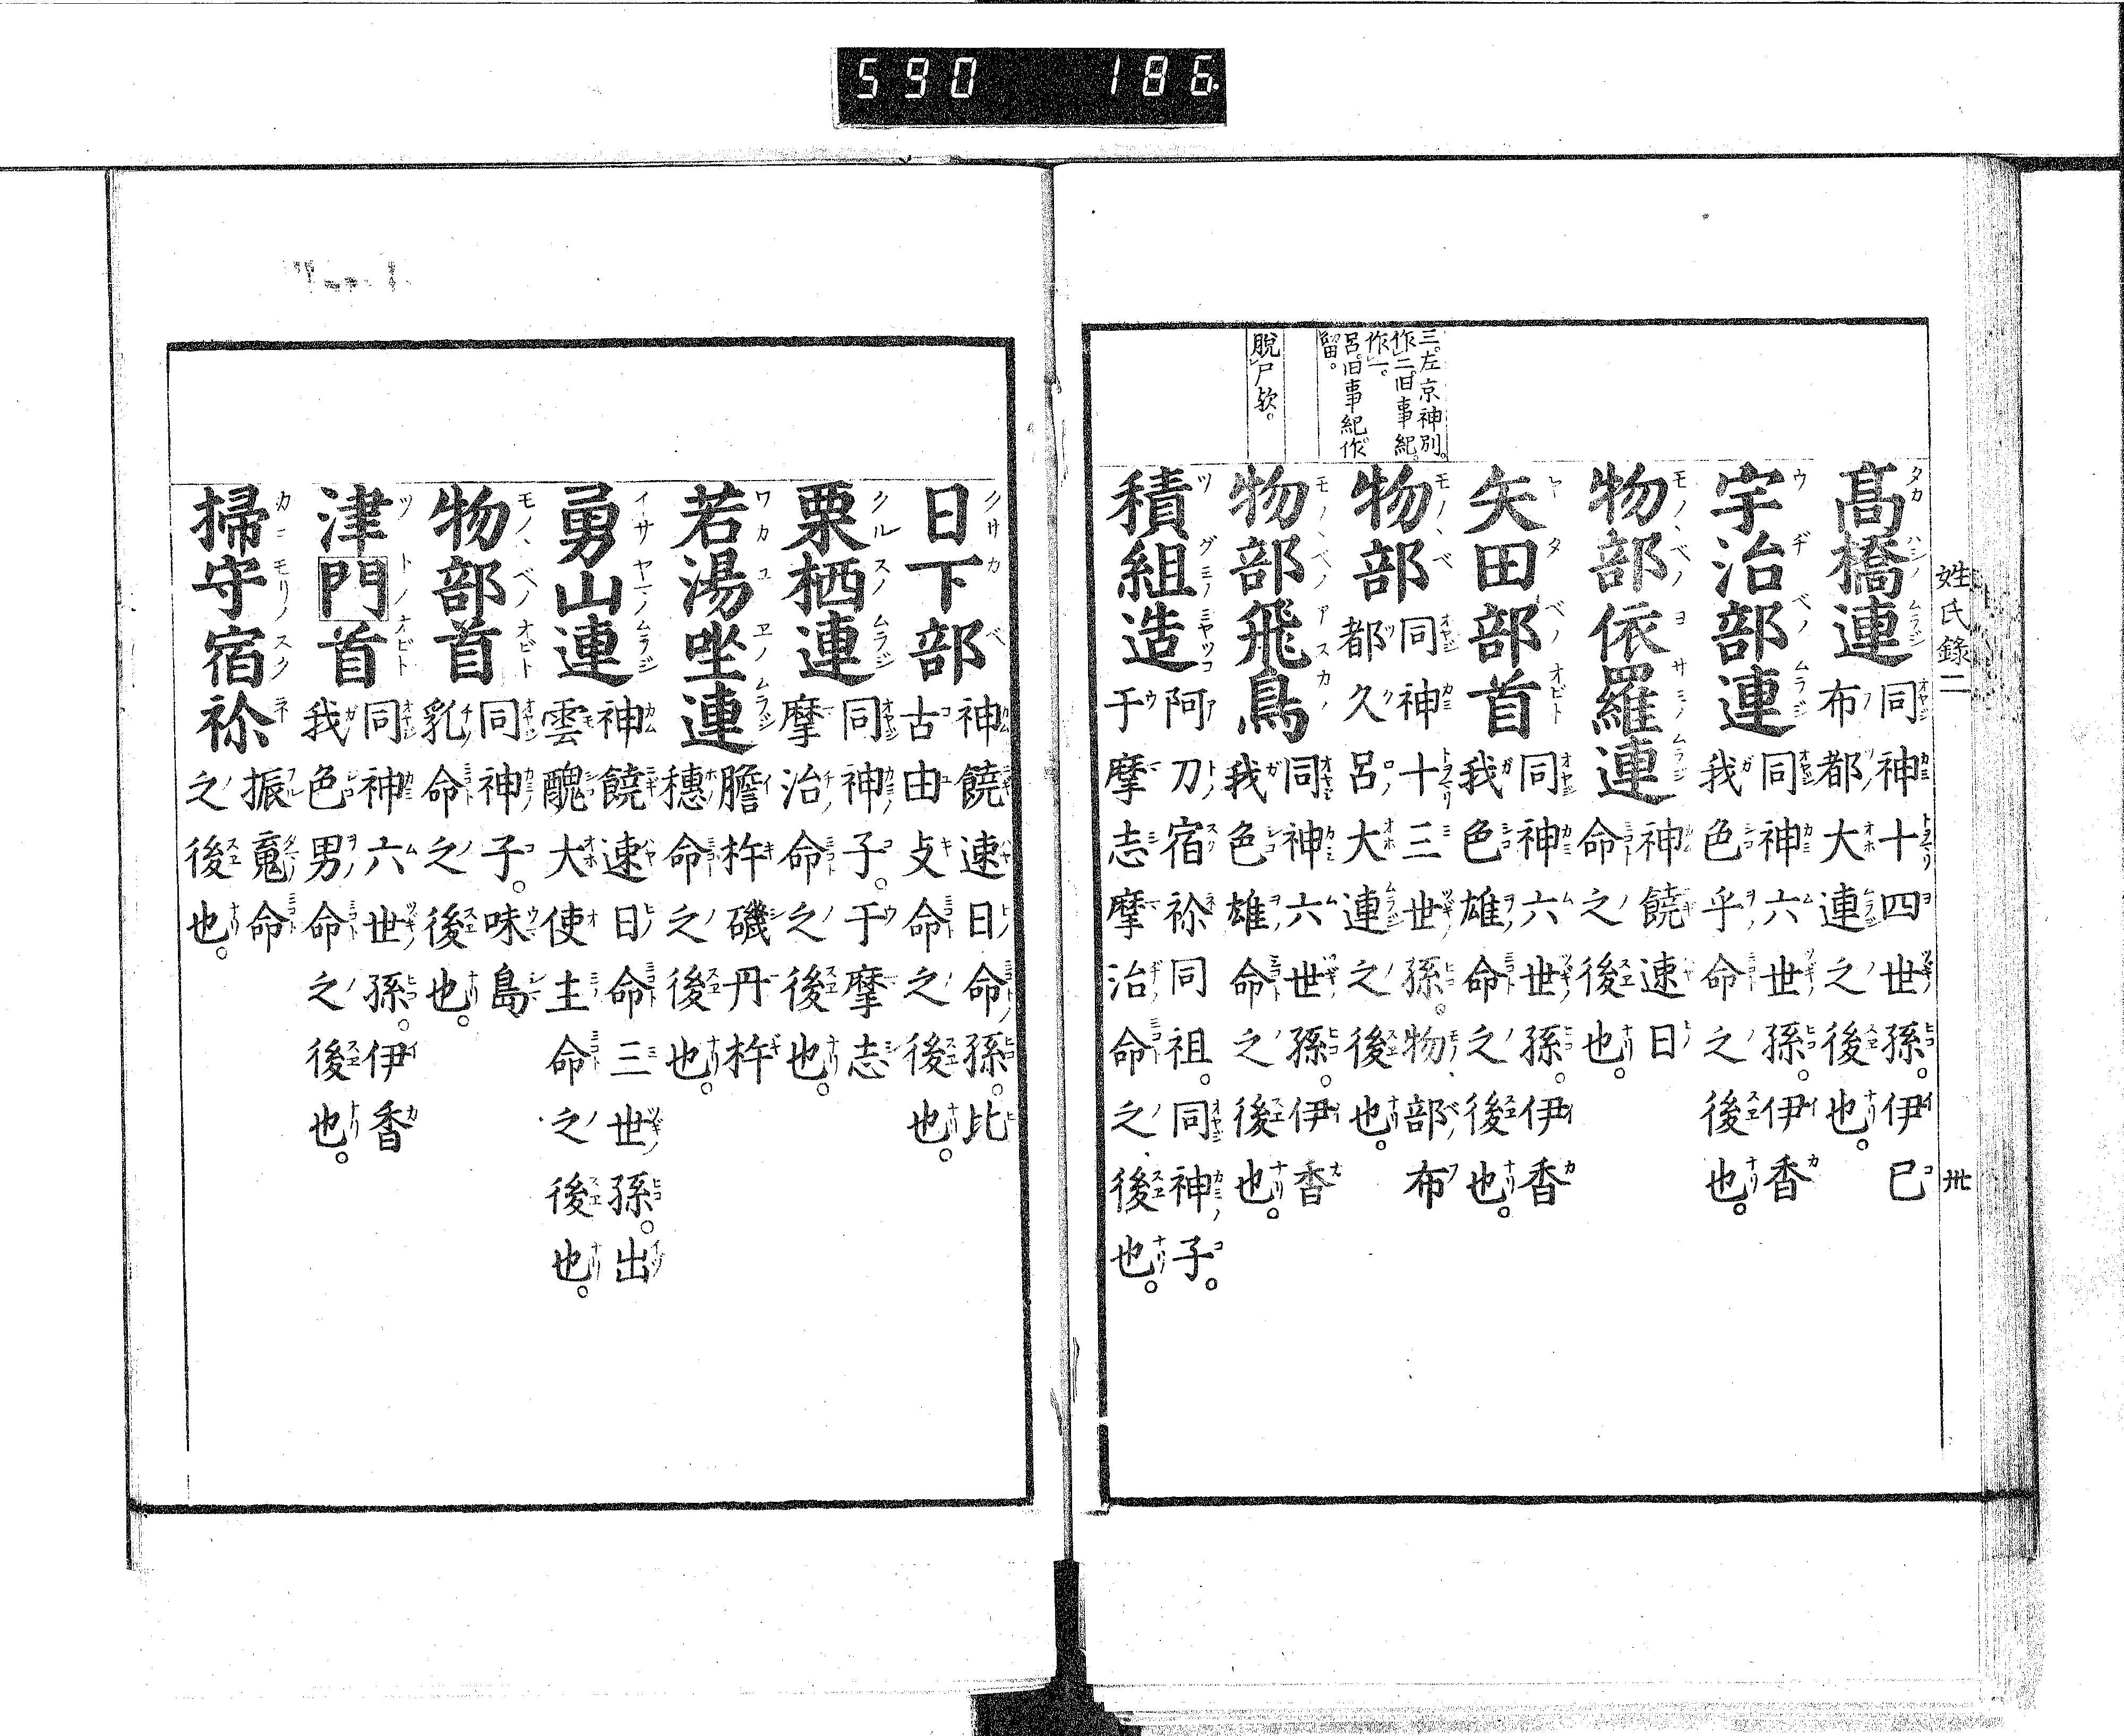 590 186
姓氏錄二 卅
三。左京神別。
作二。旧事紀。
作一。
呂。旧事紀作
留。
脫尸欤。
髙橋連 同神十四世孫。伊己
布都大連之後也。
宇治部連 同神六世孫。伊香
我色乎命之後也。
物部依羅連 神饒速日
命之後也。
矢田部首 同神六世孫。伊香
我色雄命之後也。
物部 同神十三世孫。物部布
都久呂大連之後也。
物部飛鳥 同神六世孫。伊香
我色雄命之後也。
積組造 阿刀宿祢同祖。同神子。
于摩志摩治命之後也。
日下部 神饒速日命孫。比
古由支命之後也。
栗栖連 同神子。于摩志
摩治命之後也。
若湯坐連 膽杵磯丹杵
穗命之後也。
勇山連 神饒速日命三世孫。出
雲醜大使主命之後也。
物部首 同神子。味島
乳命之後也。
津門首 同神六世孫。伊香
我色男命之後也。
掃守宿祢 振魂命
之後也。